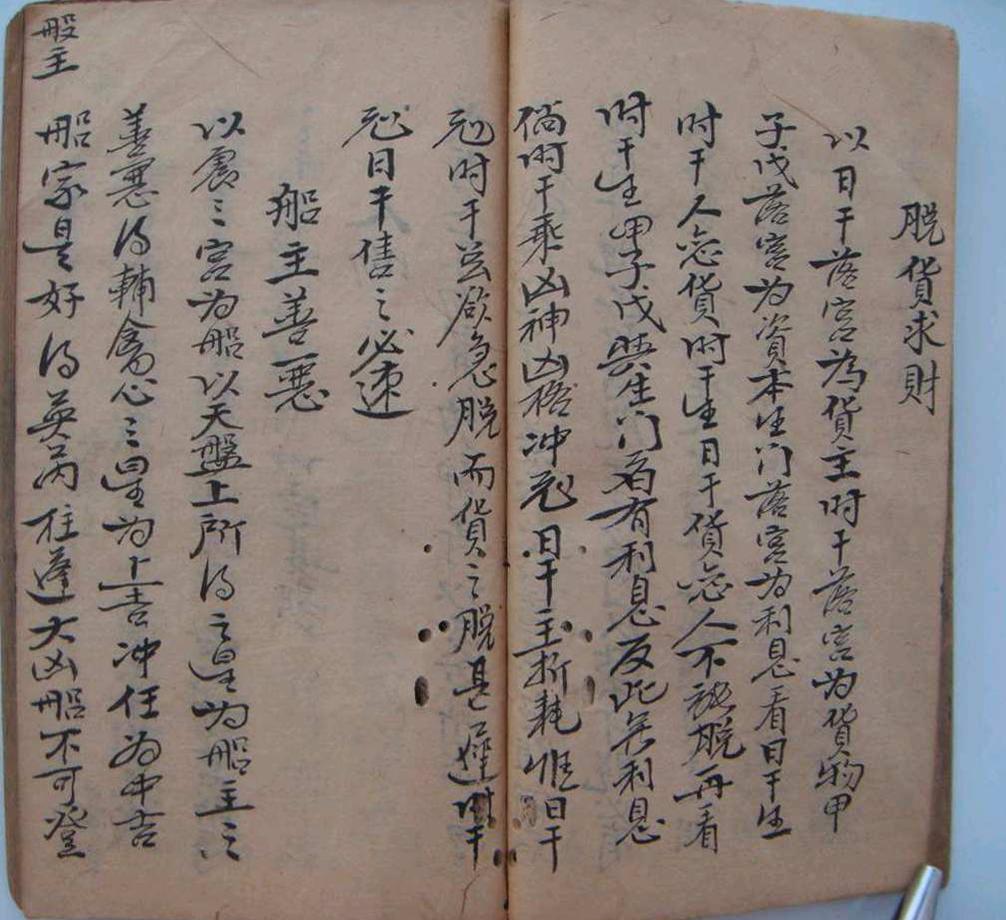 脱貨求財
以日干落宫為貨主时干落宫为貨物甲
子戊落宫为资本生门落宫为利息看日干生
时干人恋貨时干生日干貨恋人不能脱再看
时干生甲子戊與生门者有利息反此無利息
倘时干乘凶神凶格冲尅日干主折耗惟日干
尅时干並欲急脱而貨之脱甚遲时干
尅日干售之必速
船主善惡
以震三宫为船以天盤上所得之星为船主之
善惡得輔禽心三星为上吉冲任为中吉
船家是好得英芮柱蓬大凶船不可登
船主